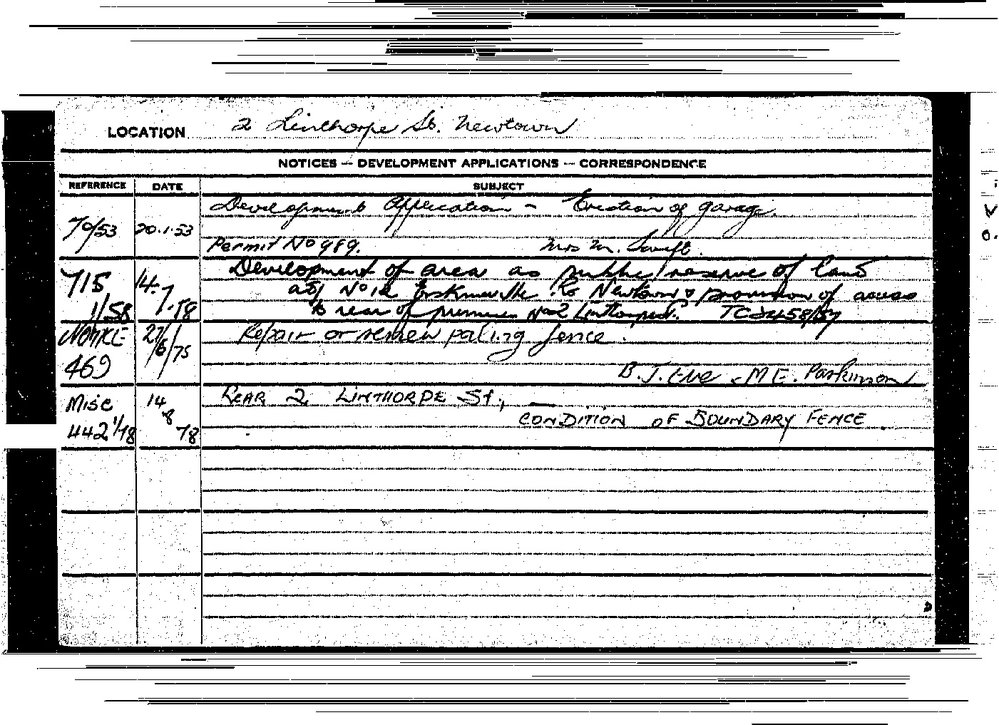 LOCATION 2 Linthorpe St. Newtown
NOTICES — DEVELOPMENT APPLICATIONS — CORRESPONDENCE
REFERENCE DATE SUBJECT
70/53 20.1.53 Development Application - Erection of garage.
Permit No 989. Mrs M. Swift.
715 1/58 14.7.58 Development of area as public reserve of land
adj No 12 Erskineville Rd Newtown & provision of access
to rear of premises No 2 Linthorpe St. TC 2458/57
NOTICE 469 27/6/75 Repair or renew paling fence.
B.J. Eve M.E. Parkinson
Misc 442 1/78 14 8 78 REAR 2 LINTHORPE St, —
CONDITION OF BOUNDARY FENCE